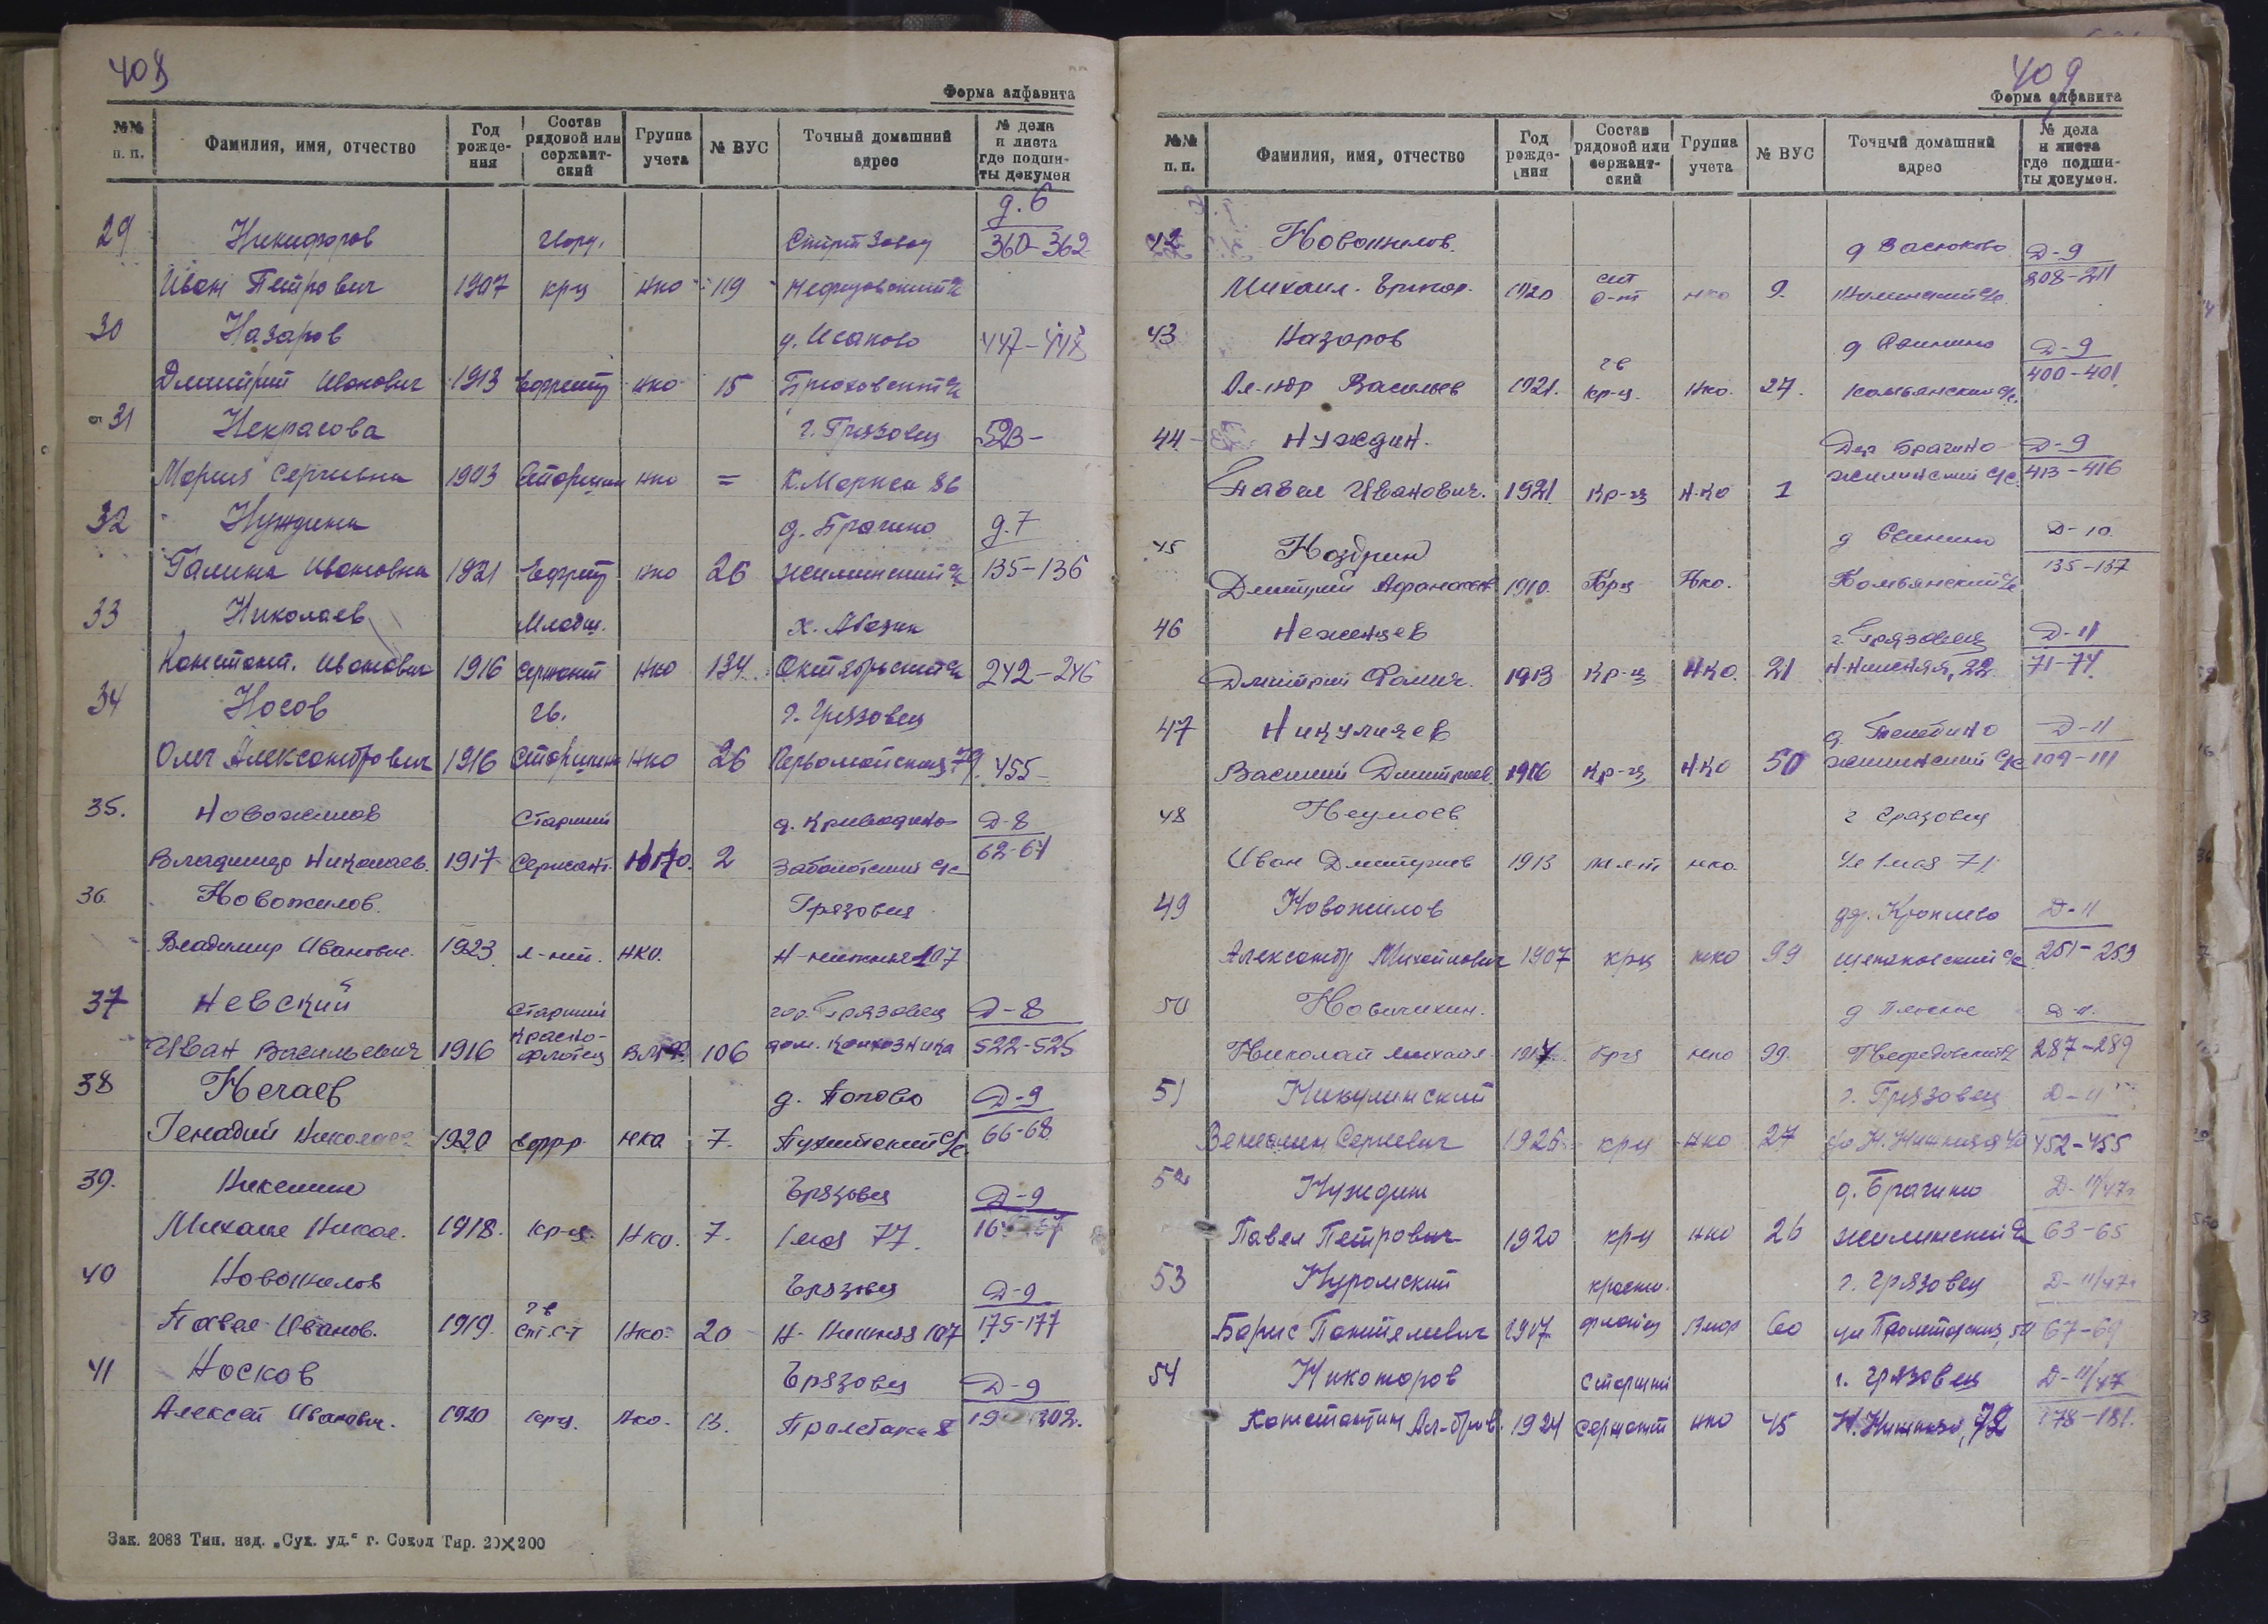 408
Форма алфавита
№№ п. п. Фамилия, имя, отчество Год рожде-ния Состав рядовой или сержант-ский Группа учета № ВУС Точный домашний адрес № дела и листа где подши-ты докумен
д. 6
29 Никифоров Спирт Завод 360-362
Иван Петрович 1907 крц нко 119 Нефедовский с/с
30 Назаров д. Исаково 447-448
Дмитрий Иванович 1913 Ефрейт нко 15 с/с
31 Некрасова г. Грязовец 523-
Мария Сергеевна 1903 Старшин нко = К. Маркса 86
32 Нуждина д. Брагино д. 7
Галина Ивановна 1921 Ефрейт нко 26 Жилинский с/с 135-136
33 Николаев Младш.
Констант. Иванович 1916 сержант нко 134 Октябрьский с/с 242-246
34 Носов гв. г. Грязовец
Олег Александрович 1916 Старшина нко 26 Первомайская 79. 455-
35. Новожилов Старший Д-8
Владимир Николаев. 1917 Сержант. НКО. 2 Заболотский с/с 62-64
36. Новожилов. Грязовец
Владимир Иванович. 1923 НКО. Н-нижняя 107
37 Невский Старший гор. Грязовец Д-8
Иван Васильевич 1916 Красно-флотец ВМФ. 106 дом. Колхозника 522-525
38 Нечаев д. Попово Д-9
Генадий Николаев 1920 ефр нка 7. с/с 66-68
39. Грязовец Д-9
Михаил Никол. 1918. кр-ц. Нко. 7. 1 мая 77.
40 Новожилов Грязовец Д-9
Павел Иванов. 1919. гв ст. с-т Нко. 20 Н- Нижняя 107 175-177
41 Носков Грязовец Д-9
Алексей Иванович. 1920 Нко.
Зак. 2083 Тип. изд. „Сух. уд.“ г. Сокол Тир. 20×200
409
Форма алфавита
№№ п. п. Фамилия, имя, отчество Год рожде-ния Состав рядовой или сержант-ский Группа учета № ВУС Точный домашний адрес № дела и листа где подши-ты докумен.
42 Новожилов. д Васюково Д-9
Михаил. Григор. 1920 нко 9. с/с. 208-211
43 Назаров д Свинино Д-9
Ал-ндр Васильев 1921. гв кр-ц. Нко. 27. Комьянский с/с. 400-401
44 Нуждин. Дер Брагино Д-9
Павел Иванович. 1921 Кр-ц Н.КО 1 Жилинский с/с. 413-416
45 Ноздрин д Свинино Д-10
Дмитрий Афанасьев 1910. Крц Нко. Комьянский с/с 135-137
46 Неженцев г. Грязовец Д-11
Дмитрий Фомич. 1913 Кр-ц НКО. 21 Н-Нижняя, 22. 71-74.
47 Никуличев Д-11
Василий Дмитриев. 1916 Кр-ц НКО 50 Жилинский с/с 109-111
48 Неумоев г Грязовец
Иван Дмитриев 1913 нко. Ул 1 мая 71
49 Новожилов Д-11
Александр Михайлович 1907 крц нко 99 с/с 251-253
50 Новичихин. д Плоское Д-11.
Николай Михайл. крц нко 99. Нефедовский с/с 287-289
51 Никулинский г. Грязовец Д-11
Вениамин Сергеевич 1926 крц нко 27 452-455
52 Нуждин д. Брагино Д-11/47г.
Павел Петрович 1920 кр-ц нко 26 Жилинский с/с 63-65
53 Нуромский красно- г. Грязовец Д-11/47г.
Борис Пантелевич 1907 флотец Вмф 60 67-69
54 Никоноров Старший г. Грязовец Д-11/47
Константин Ал-дров. 1924 сержант нко 45 Н. Нижняя, 72 178-181.